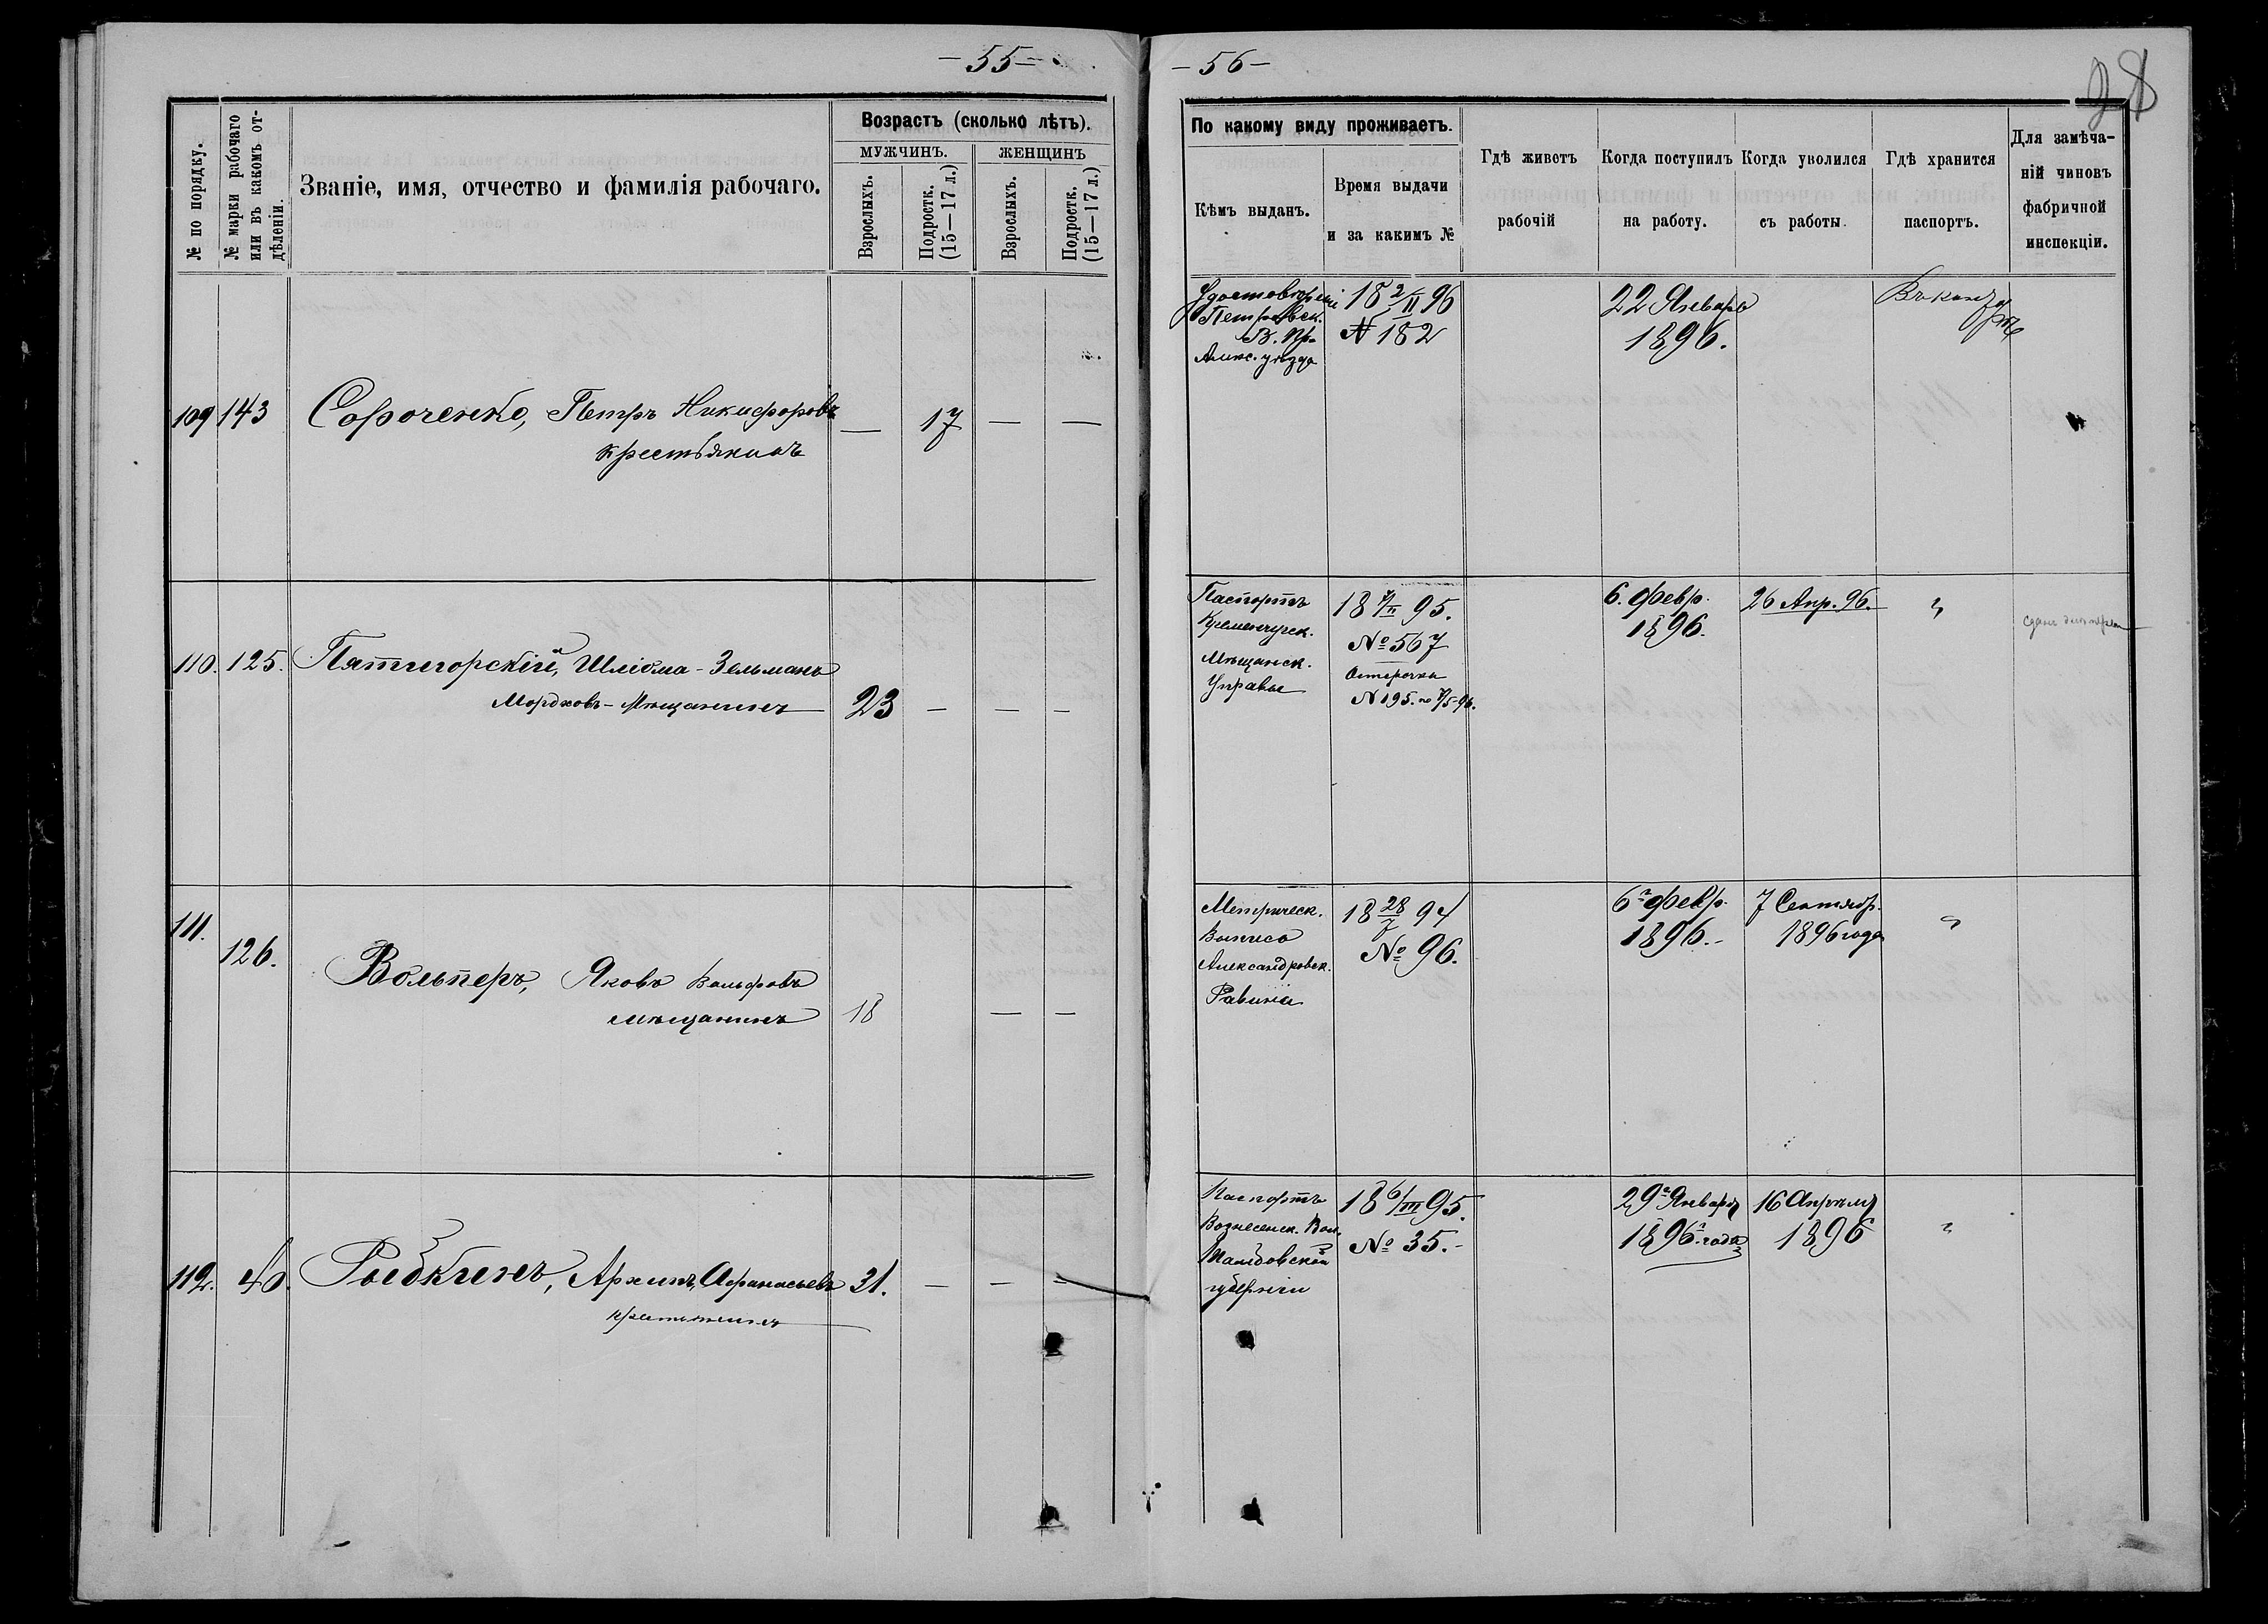 — 55 —
№ по порядку.
№ марки рабочаго
или въ какомъ от-
дѣленіи.
Званіе, имя, отчество и фамилія рабочаго.
Возрастъ (сколько лѣтъ).
МУЖЧИНЪ.
ЖЕНЩИНЪ
Взрослыхъ.
Подростк.
(15—17 л.)
Взрослыхъ.
Подростк.
(15—17 л.)
109 143 Сороченко, Петръ Никифоровъ — 17 — —
крестьянинъ
110. 125. Пятигорскій, Шліома-Зельманъ
Мордховъ - Мѣщанинъ 23 — — —
111.
126. Вольперъ, Яковъ Вольфовъ
мѣщанинъ 18 — —
112. 40. Рыбкинъ, Архипъ Афанасьевъ 31. — — —
крестьянинъ
— 56 —
98
По какому виду проживаетъ.
Кѣмъ выданъ.
Время выдачи
и за какимъ №
Гдѣ живетъ
рабочій
Когда поступилъ
на работу.
Когда уволился
съ работы.
Гдѣ хранится
паспортъ.
Для замѣча-
ній чиновъ
фабричной
инспекціи.
Петровск.
В. Пр.
Алекс. уѣзда
18 2/II 96
№ 182
22 Января
1896.
Паспортъ
Кременчугск.
Мѣщанск.
Управы
18 7/II 95.
№ 567
Отсрочка
N 195.
6. Февр.
1896.
26 Апр. 96.
"
Метрическ.
Выпись
Александровск.
Равина
18 28/7 94
№ 96.
6го Февр.
1896.-
7 Сентябр.
1896 года
"
Паспортъ
Вознесенск. Вол.
Тамбовской
губерніи
18 6/III 95.
№ 35.-
29го Января
1896 года
16 Апрѣля
1896
"